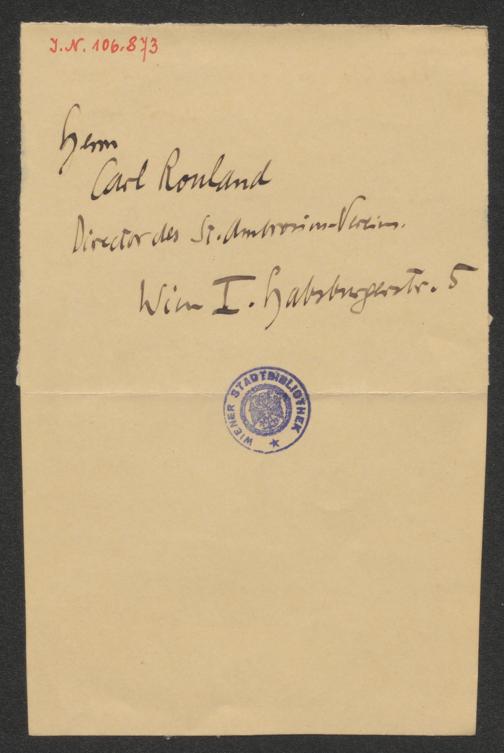 J.N. 106.873
Herrn
Carl Rouland
Director des St. Ambrosius-Vereins.
Wien I. Habsburgerstr. 5
WIENER STADTBIBLIOTHEK